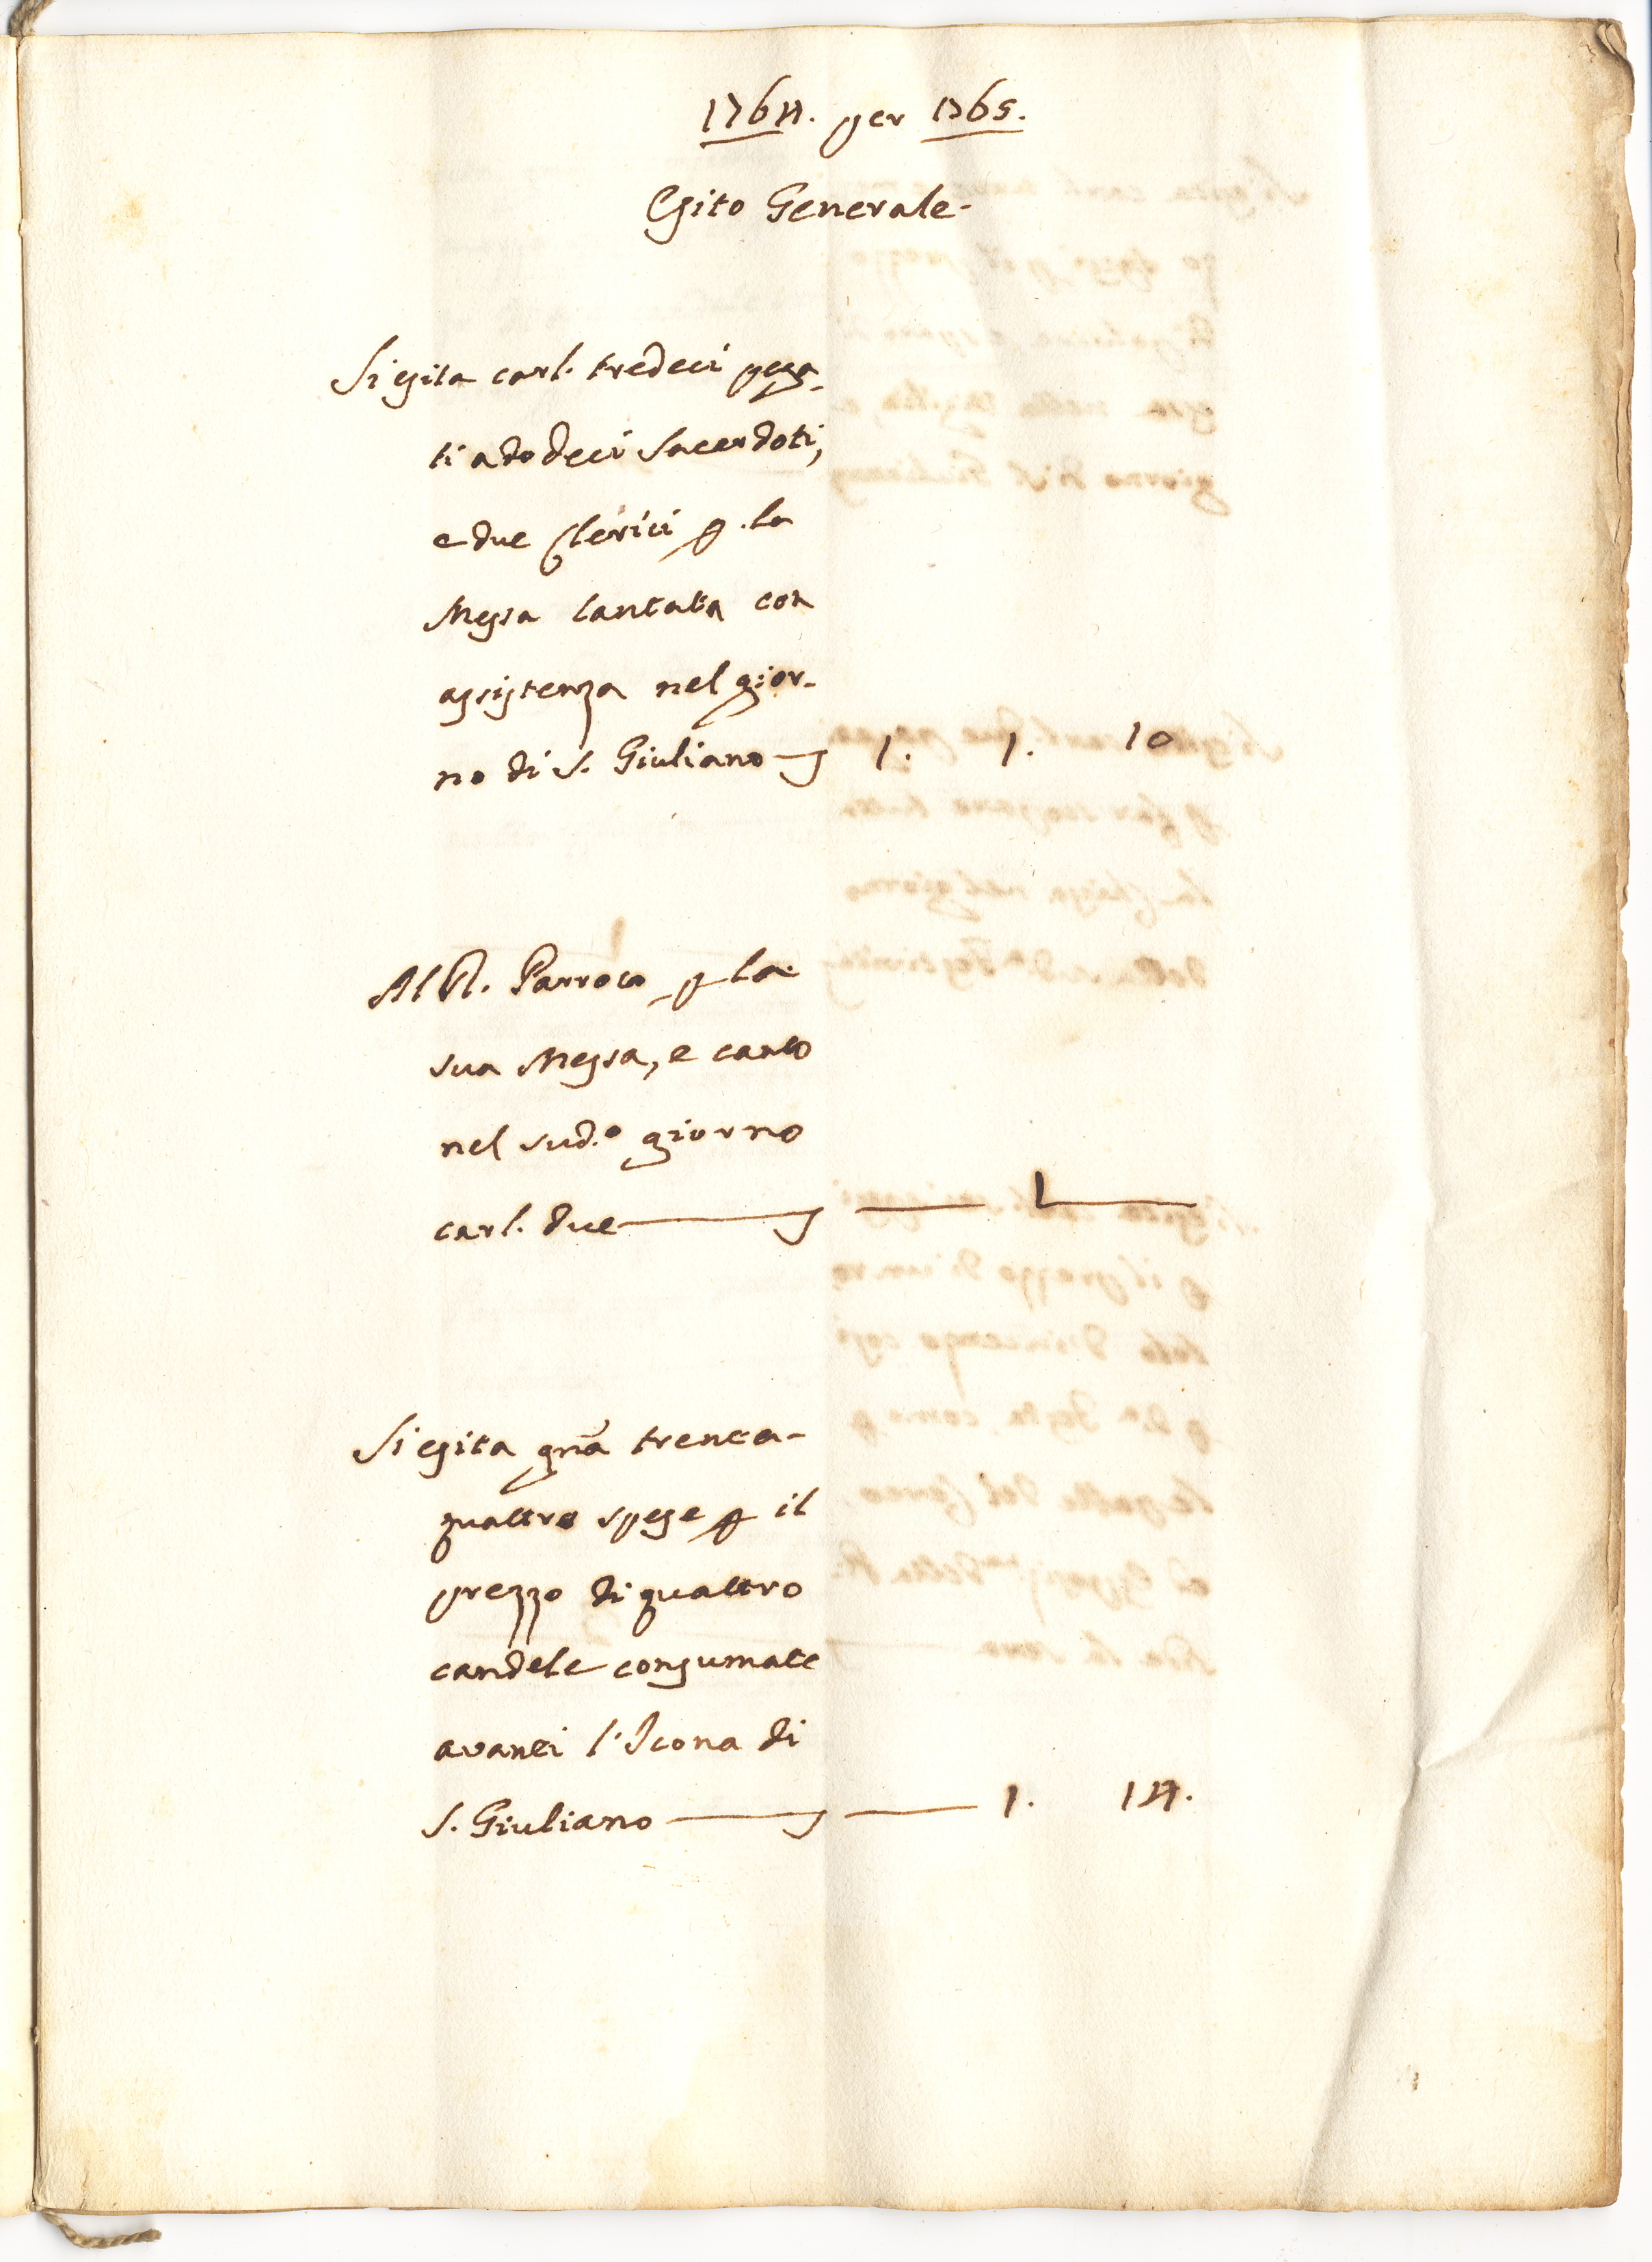 1764. per 1765.
Esito Generale.
Si esita carl. tredeci paga-
ti a dodeci Sacerdoti,
e due Clerici p. la
Messa Cantata con
assistenza nel gior-
no di S. Giuliano — 1. 1. 10
Al R. Parroco p la
sua Messa, e canto
nel sud.o giorno
carl. due — — 1 —
Si esita gna trenta-
quattro spese p il
prezzo di quattro
candele consumate
avanti l'Icona di
S. Giuliano — — 1. 14.